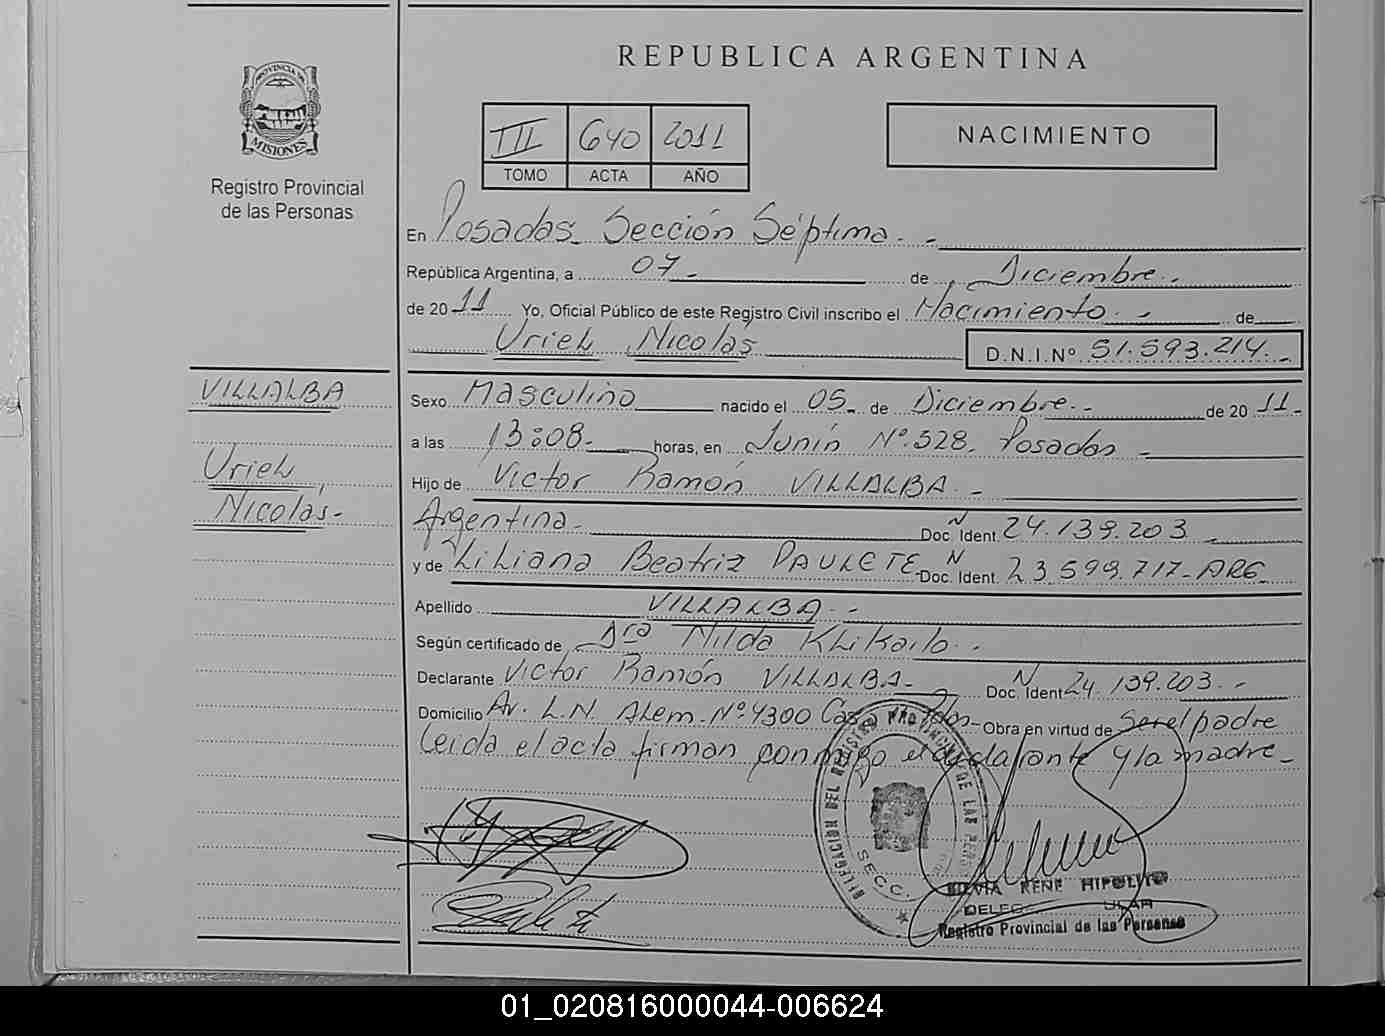 REPUBLICA ARGENTINA
PROVINCIA DE
MISIONES
Registro Provincial
de las Personas
III 640 2011
TOMO ACTA AÑO
NACIMIENTO
En Posadas Sección Séptima.-
República Argentina, a 07- de Diciembre.-
de 2011 Yo, Oficial Público de este Registro Civil inscribo el Nacimiento.- de
Uriel Nicolás D.N.I.Nº 51.593.214.-
VILLALBA
Uriel
Nicolás.-
Sexo Masculino nacido el 05- de Diciembre.- de 2011-
a las 13:08- horas, en Junín Nº 328. Posadas-
Hijo de Victor Ramón VILLALBA.-
Argentina.- Doc. Ident. N 24.139.203
y de Liliana Beatriz PAULETE- Doc. Ident. N 23.599.717-ARG
Apellido VILLALBA.-
Según certificado de Dra Nilda Khikailo.-
Declarante Victor Ramón VILLALBA- Doc. Ident N 24.139.203.-
Domicilio Av. L.N. Alem-Nº4300 Posadas- Obra en virtud de Ser el padre
Leida el acta firman conmigo el declarante y la madre-
DELEGACIÓN DEL REGISTRO PROVINCIAL DE LAS
SECC.
SILVIA RENE HIPOLITO
Registro Provincial de las Personas
01_020816000044-006624